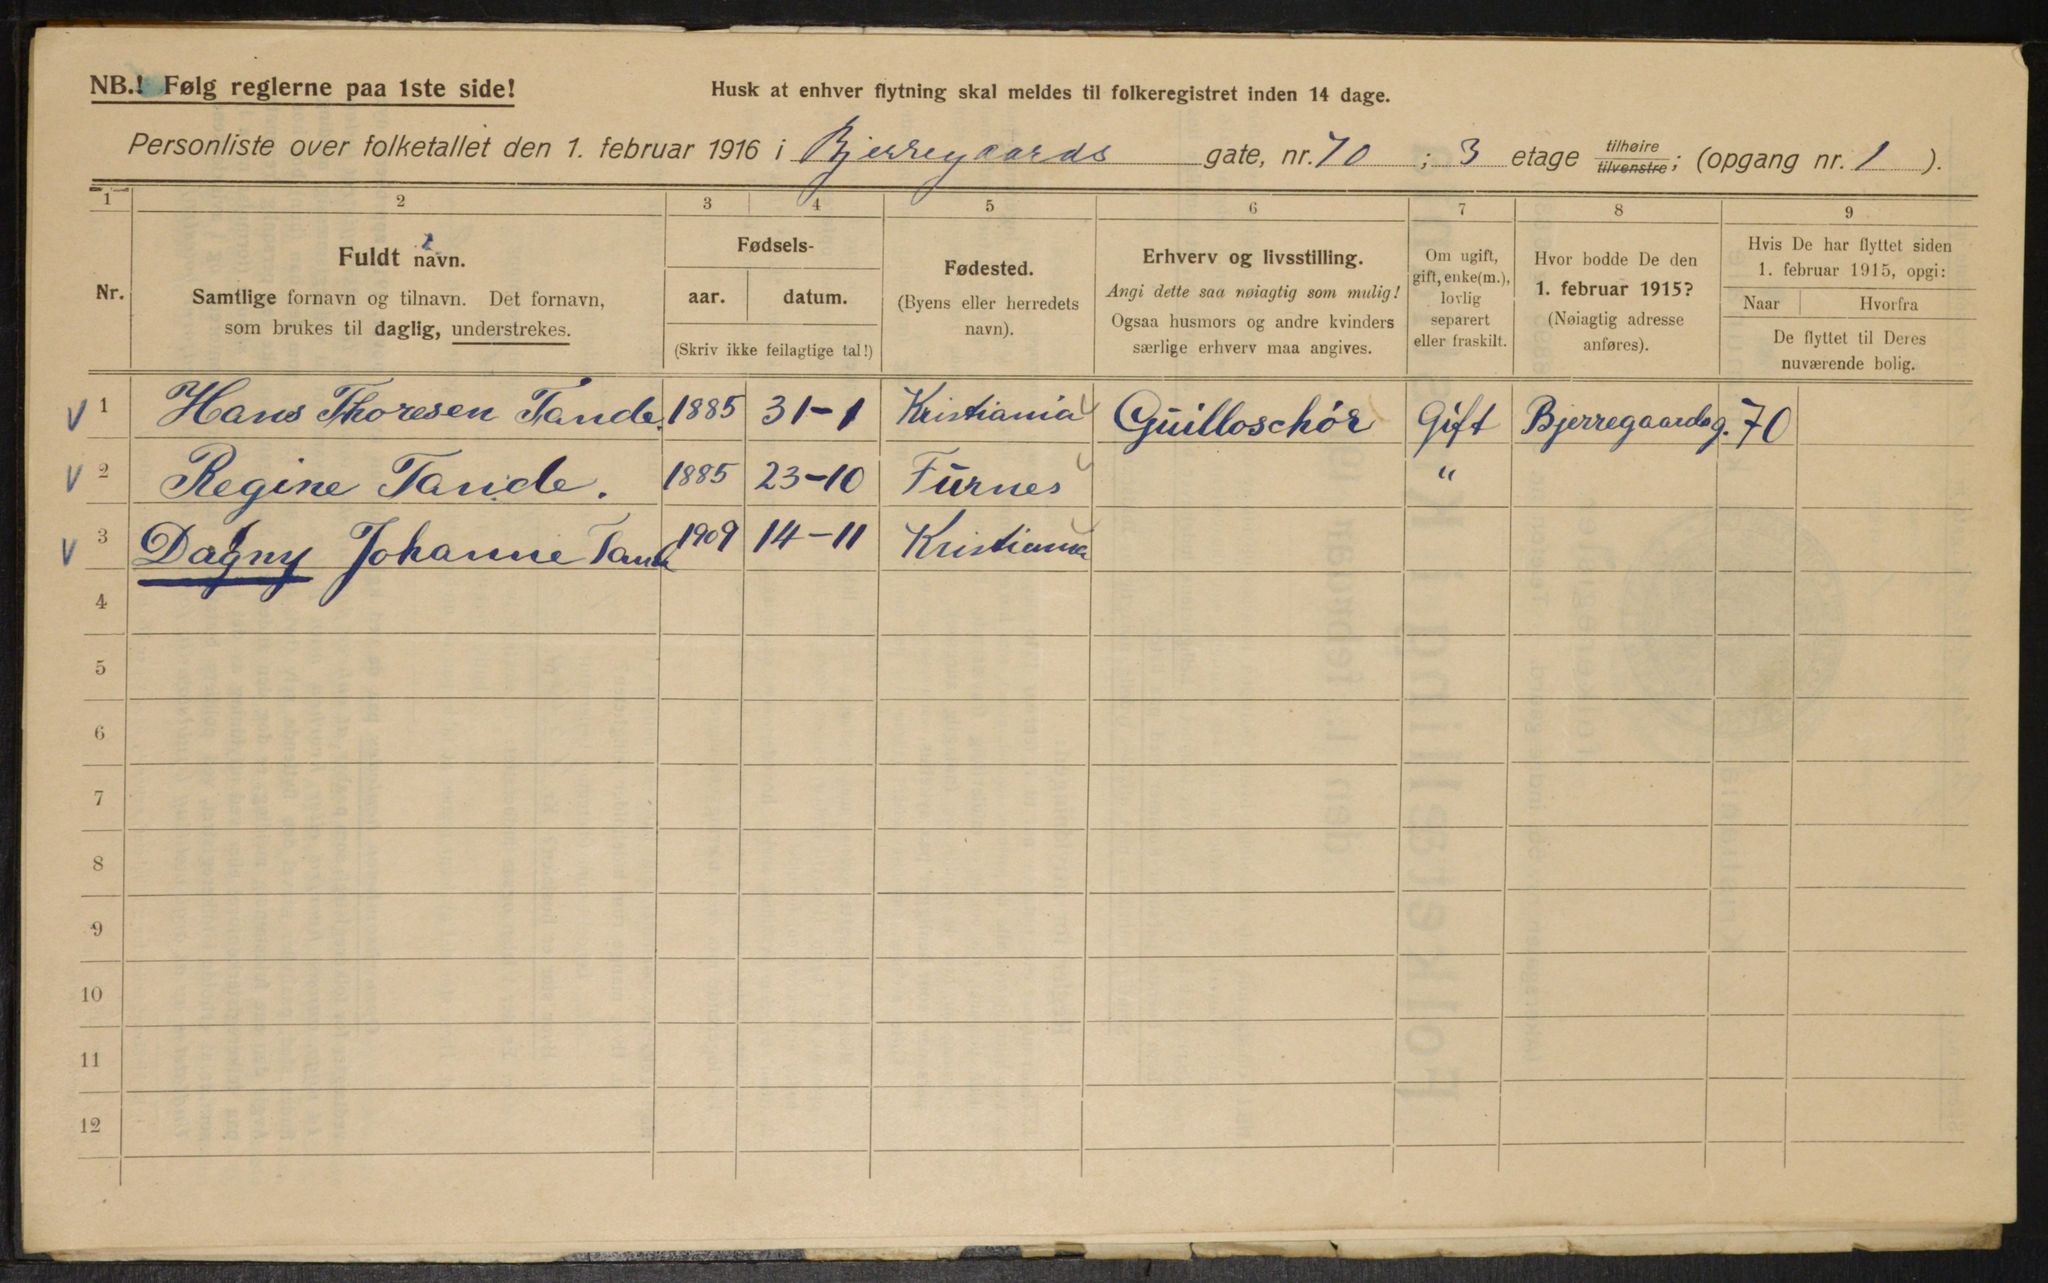 NB.! Følg reglerne paa 1ste side!
Husk at enhver flytning skal meldes til folkeregistret inden 14 dage.
Personliste over folketallet den 1. februar 1916 i Bjerregaards gate, nr. 70 ; 3 etage tilhøire tilvenstre; (opgang nr. 1 ).
1 2 3 4 5 6 7 8 9
Nr.
Fuldt navn.
Samtlige fornavn og tilnavn. Det fornavn,
som brukes til daglig, understrekes.
Fødsels-
aar. datum.
(Skriv ikke feilagtige tal!)
Fødested.
(Byens eller herredets
navn).
Erhverv og livsstilling.
Angi dette saa nøiagtig som mulig!
Ogsaa husmors og andre kvinders
særlige erhverv maa angives.
Om ugift,
gift, enke(m.),
lovlig
separert
eller fraskilt.
Hvor bodde De den
1. februar 1915?
(Nøiagtig adresse
anføres).
Hvis De har flyttet siden
1. februar 1915, opgi:
Naar Hvorfra
De flyttet til Deres
nuværende bolig.
V 1 Hans Thoresen Tande. 1885 31-1 Kristiania Guilloschör Gift Bjerregaardsg. 70
V 2 Regine Tande. 1885 23-10 Furnes "
V 3 Dagny Johanne Tande 1909 14-11 Kristiania
4
5
6
7
8
9
10
11
12